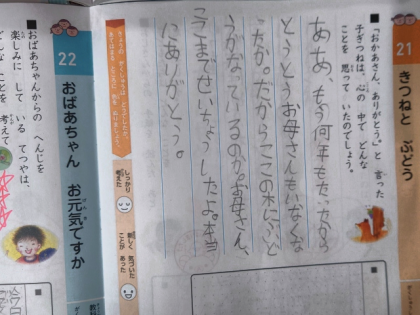 21
きつねと ぶどう
■「おかあさん、ありがとう。」と 言った
子ぎつねは、心の 中で どんな
ことを 思って いたのでしょう。
ああ、もう何年もたったから
とう お母さんもいなくな
ったか。だからここの木にぶど
うがなっているのか。お母さん、
ここまでせいちょうしたよ。本当
にありがとう。
しっかり
考えた
新しく 気づいた
ことが あった
22
おばあちゃん お元気ですか
おばあちゃんからの へんじを
楽しみに して いる てつやは、
どんな ことを 考えて